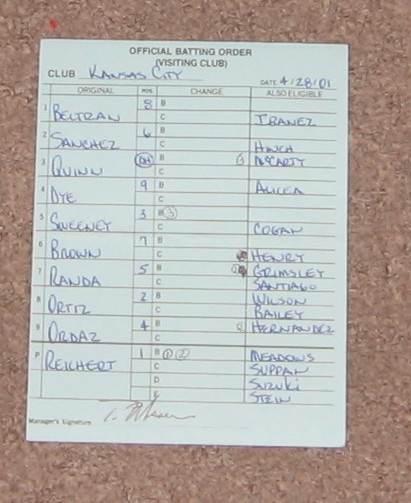 OFFICIAL BATTING ORDER
(VISITING CLUB)
CLUB KANSAS CITY DATE 4/28/01
ORIGINAL POS. CHANGE ALSO ELIGIBLE
1 BELTRAN 8 B
C IBANEZ
2 SANCHEZ 6 B
C HINCH
3 QUINN DH B MCCARTY
C
4 DYE 9 B ALICEA
C
5 SWEENEY 3 B 3
C COGAN
6 BROWN 7 B
C HENRY
7 RANDA 5 B GRIMSLEY
C SANTIAGO
8 ORTIZ 2 B WILSON
C BAILEY
9 ORDAZ 4 B HERNANDEZ
C
P REICHERT 1 B 1 2 MEADOWS
C SUPPAN
D SUZUKI
E STEIN
Manager's Signature